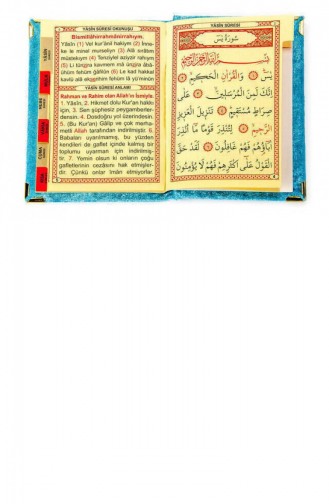 YÂSÎN SURESİ OKUNUŞU
Bismillâhirrahmânirrahıym.
Yâsîn (1) Vel kur'ânil hakiym (2) İnne-
ke le minel murselıyn (3) Alâ sırâtım
müstekıym (4) Tenziylel aziyzir rahıym
(5) Li tünzira kavmem mâ ünzira âbâ-
ühüm fehüm ğâfilûn (6) Le kad hakkal
kavlü alâ ekserihim fehüm lâ yü'minûn
YÂSÎN SÛRESİ ANLAMI
Rahman ve Rahim olan Allah'ın İsmiyle.
1. Yâsîn, 2. Hikmet dolu Kur'an hakkı
için, 3. Sen şüphesiz peygamberler-
densin. 4. Dosdoğru yol üzerindesin.
5. (Bu Kur'an) Gâlip ve çok merha-
metli Allah tarafından indirilmiştir. 6.
Babaları uyarılmamış, bu yüzden
kendileri de gaflet içinde kalmış bir
toplumu uyarman için indirilmiş-
tir. 7. Yemin olsun ki onların çoğu
gafletlerinin cezâsını hak etmişler-
dir. Çünkü onlar îmân etmiyorlar.
YÂSÎN SÛRESİ
سُورَةُ يٰسٓ
بِسْمِ اللّٰهِ الرَّحْمٰنِ الرَّحِيمِ
يٰسٓ ۞ وَالْقُرْاٰنِ الْحَكِيمِ ۞
اِنَّكَ لَمِنَ الْمُرْسَلِينَ ۞ عَلٰى
صِرَاطٍ مُسْتَقِيمٍ ۞ تَنْزِيلَ الْعَزِيزِ
الرَّحِيمِ ۞ لِتُنْذِرَ قَوْمًا مَا اُنْذِرَ
اٰبَاؤُهُمْ فَهُمْ غَافِلُونَ ۞ لَقَدْ حَقَّ
الْقَوْلُ عَلٰى اَكْثَرِهِمْ فَهُمْ لَا يُؤْمِنُونَ